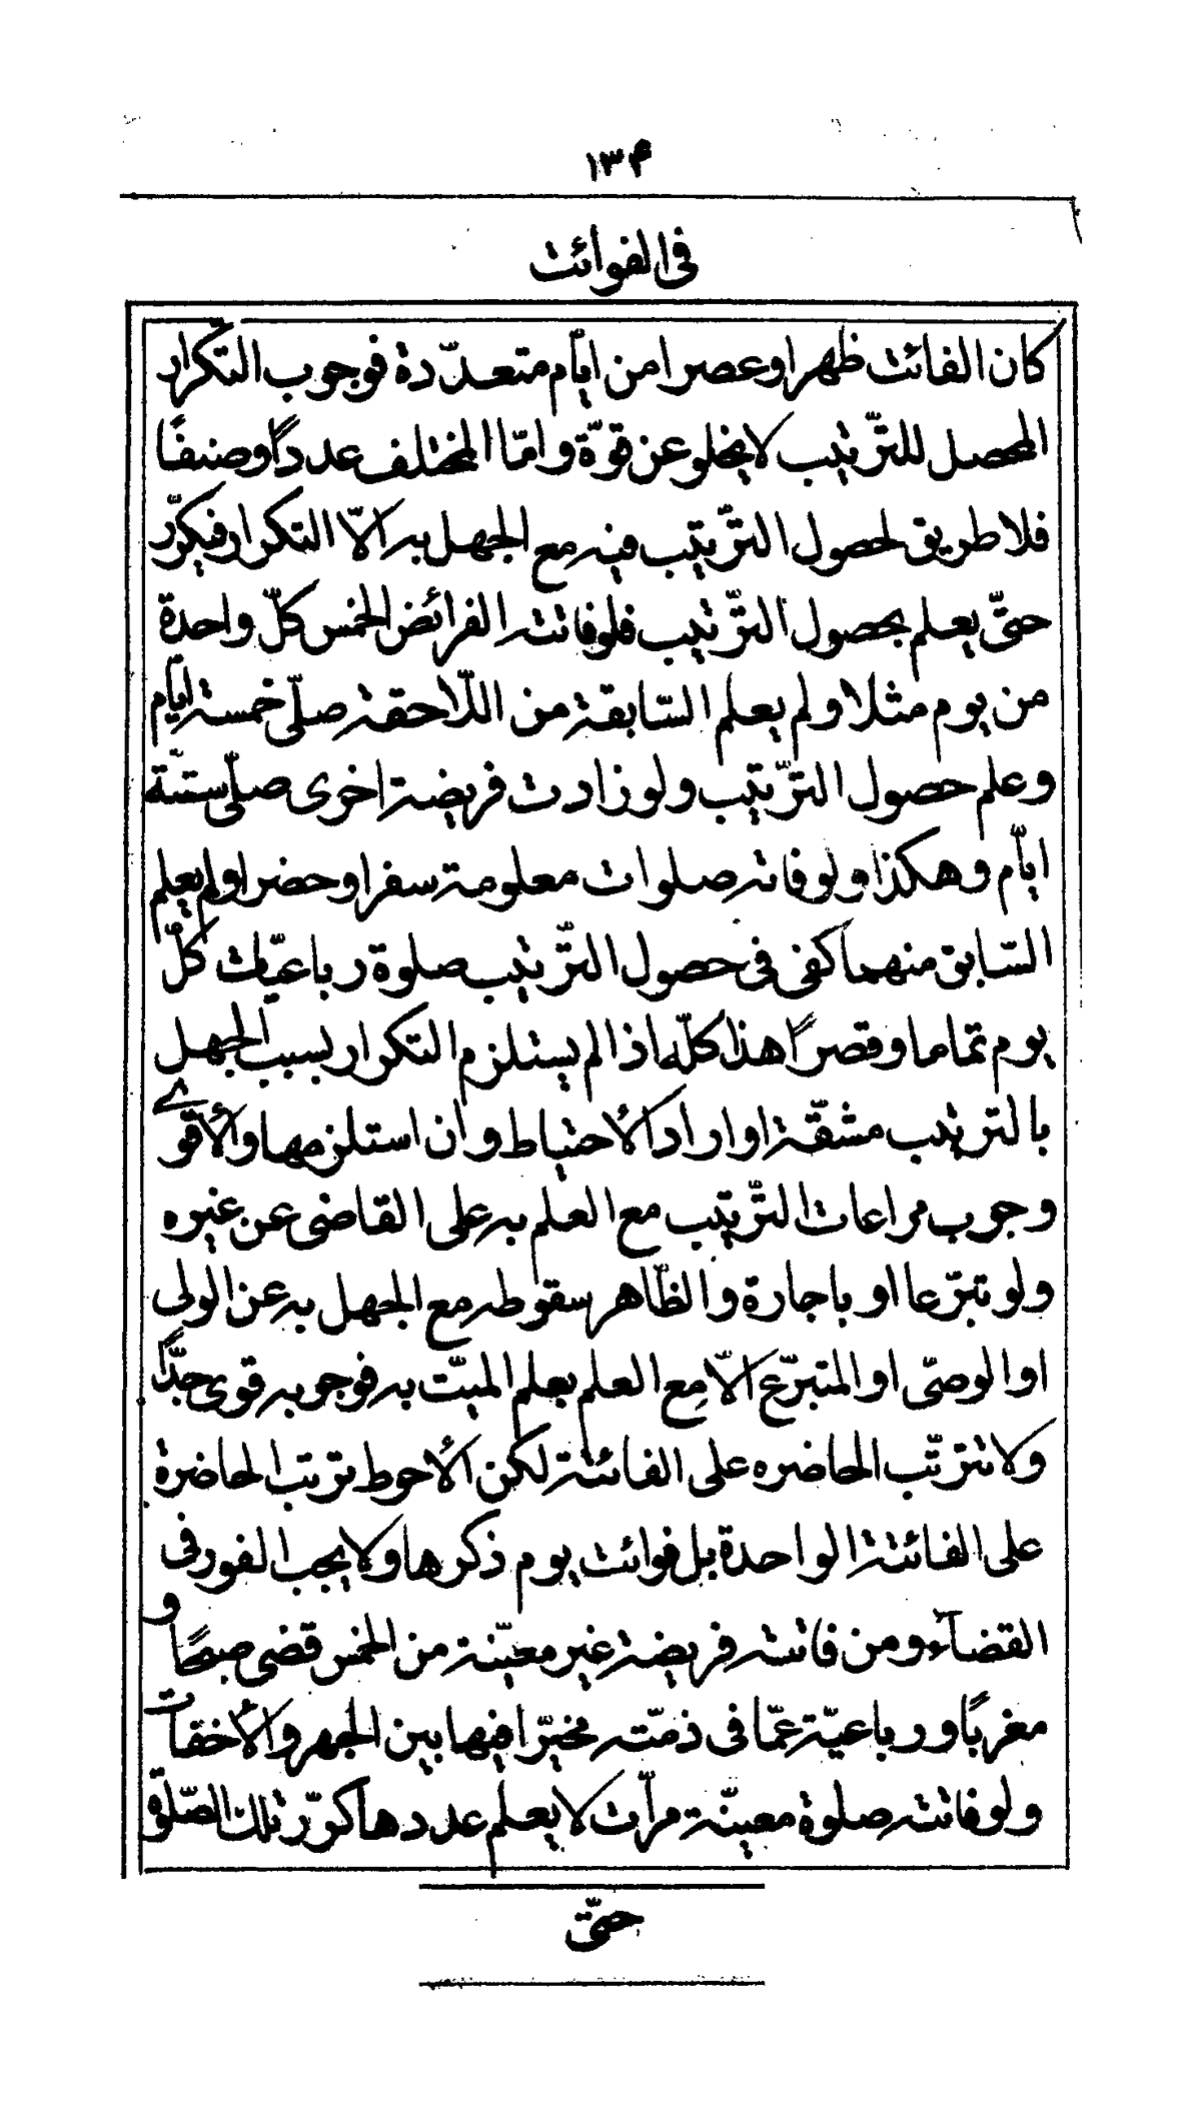 ١٣۴
فى الفوائت
كان الفائت ظهرا وعصرا من ايّام متعدّدة فوجوب التكرار
المحصل للترّتيب لا يخلو عن قوّة وامّا المختلف عدداً وصنفًا
فلا طريق لحصول الترّتيب فيه مع الجهل به الّا التكرار فيكرّر
حتّى يعلم بحصول الترّتيب فلو فاتته الفرائض الخمس كلّ واحدة
من يوم مثلا ولم يعلم السّابقة من اللّاحقة صلّى خمسة ايّام
وعلم حصول الترّتيب ولو زادت فريضة اخرى صلّى ستّة
ايّام وهكذا ولو فاته صلوات معلومة سفرا وحضرا ولم يعلم
السّابق منهما كفى فى حصول الترّتيب صلوة رباعيّات كلّ
يوم تماما وقصرًا هذا كلّه اذا لم يستلزم التكرار بسبب الجهل
بالترتيب مشقّة او اراد الأحتياط وان استلزمها والأقوے
وجوب مراعات الترّتيب مع العلم به على القاضى عن غيره
ولو تبرّعا او باجارة والظّاهر سقوطه مع الجهل به عن الولى
او الوصّى او المتبرّع الّا مع العلم بعلم الميّت به فوجوبه قوى جدّاً
ولا تترتّب الحاضره على الفائتة لكن الأحوط ترتب الحاضرة
على الفائتة الواحدة بل فوائت يوم ذكرها ولا يجب الفور فى
القضآء ومن فاتته فريضة غير معيّنة من الخمس قضى صبحًا و
مغربًا ورباعيّة عمّا فى ذمّته مخيّرا فيها بين الجهر والأخفات
ولو فاتته صلوة معيّنة مرّات لا يعلم عددها كرّر تلك الصّلوة
حتّى